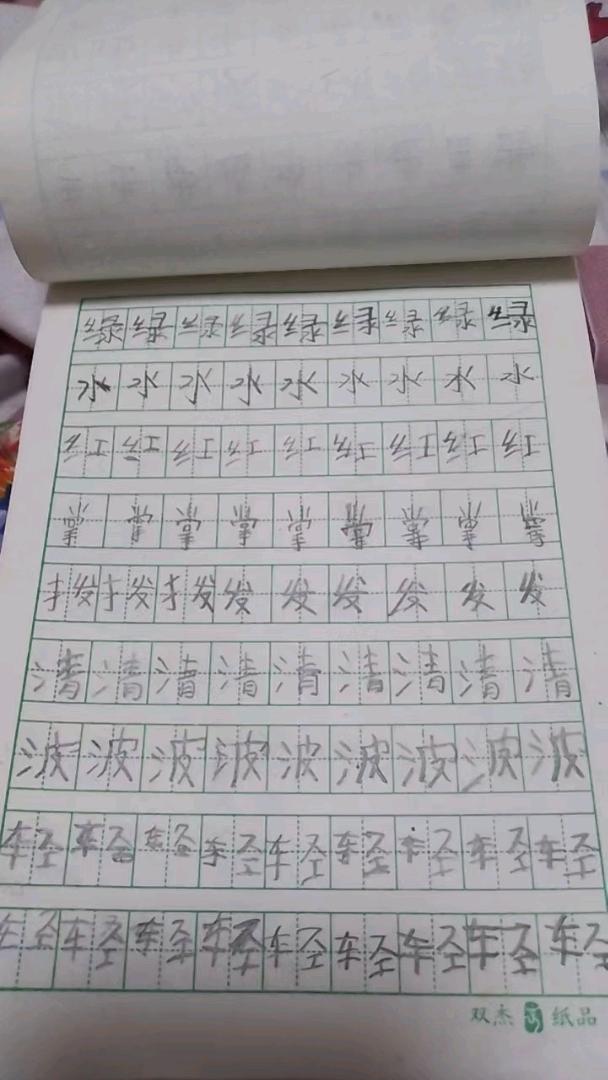 绿绿绿绿绿绿绿绿绿
水水水水水水水水水
红红红红红红红红红
掌掌掌掌掌掌掌掌掌
拨拨拨发发发发发发
清清清清清清清清清
波波波波波波波波波
轻轻轻轻轻轻轻轻轻
轻轻轻轻轻轻轻轻轻
双杰 纸品